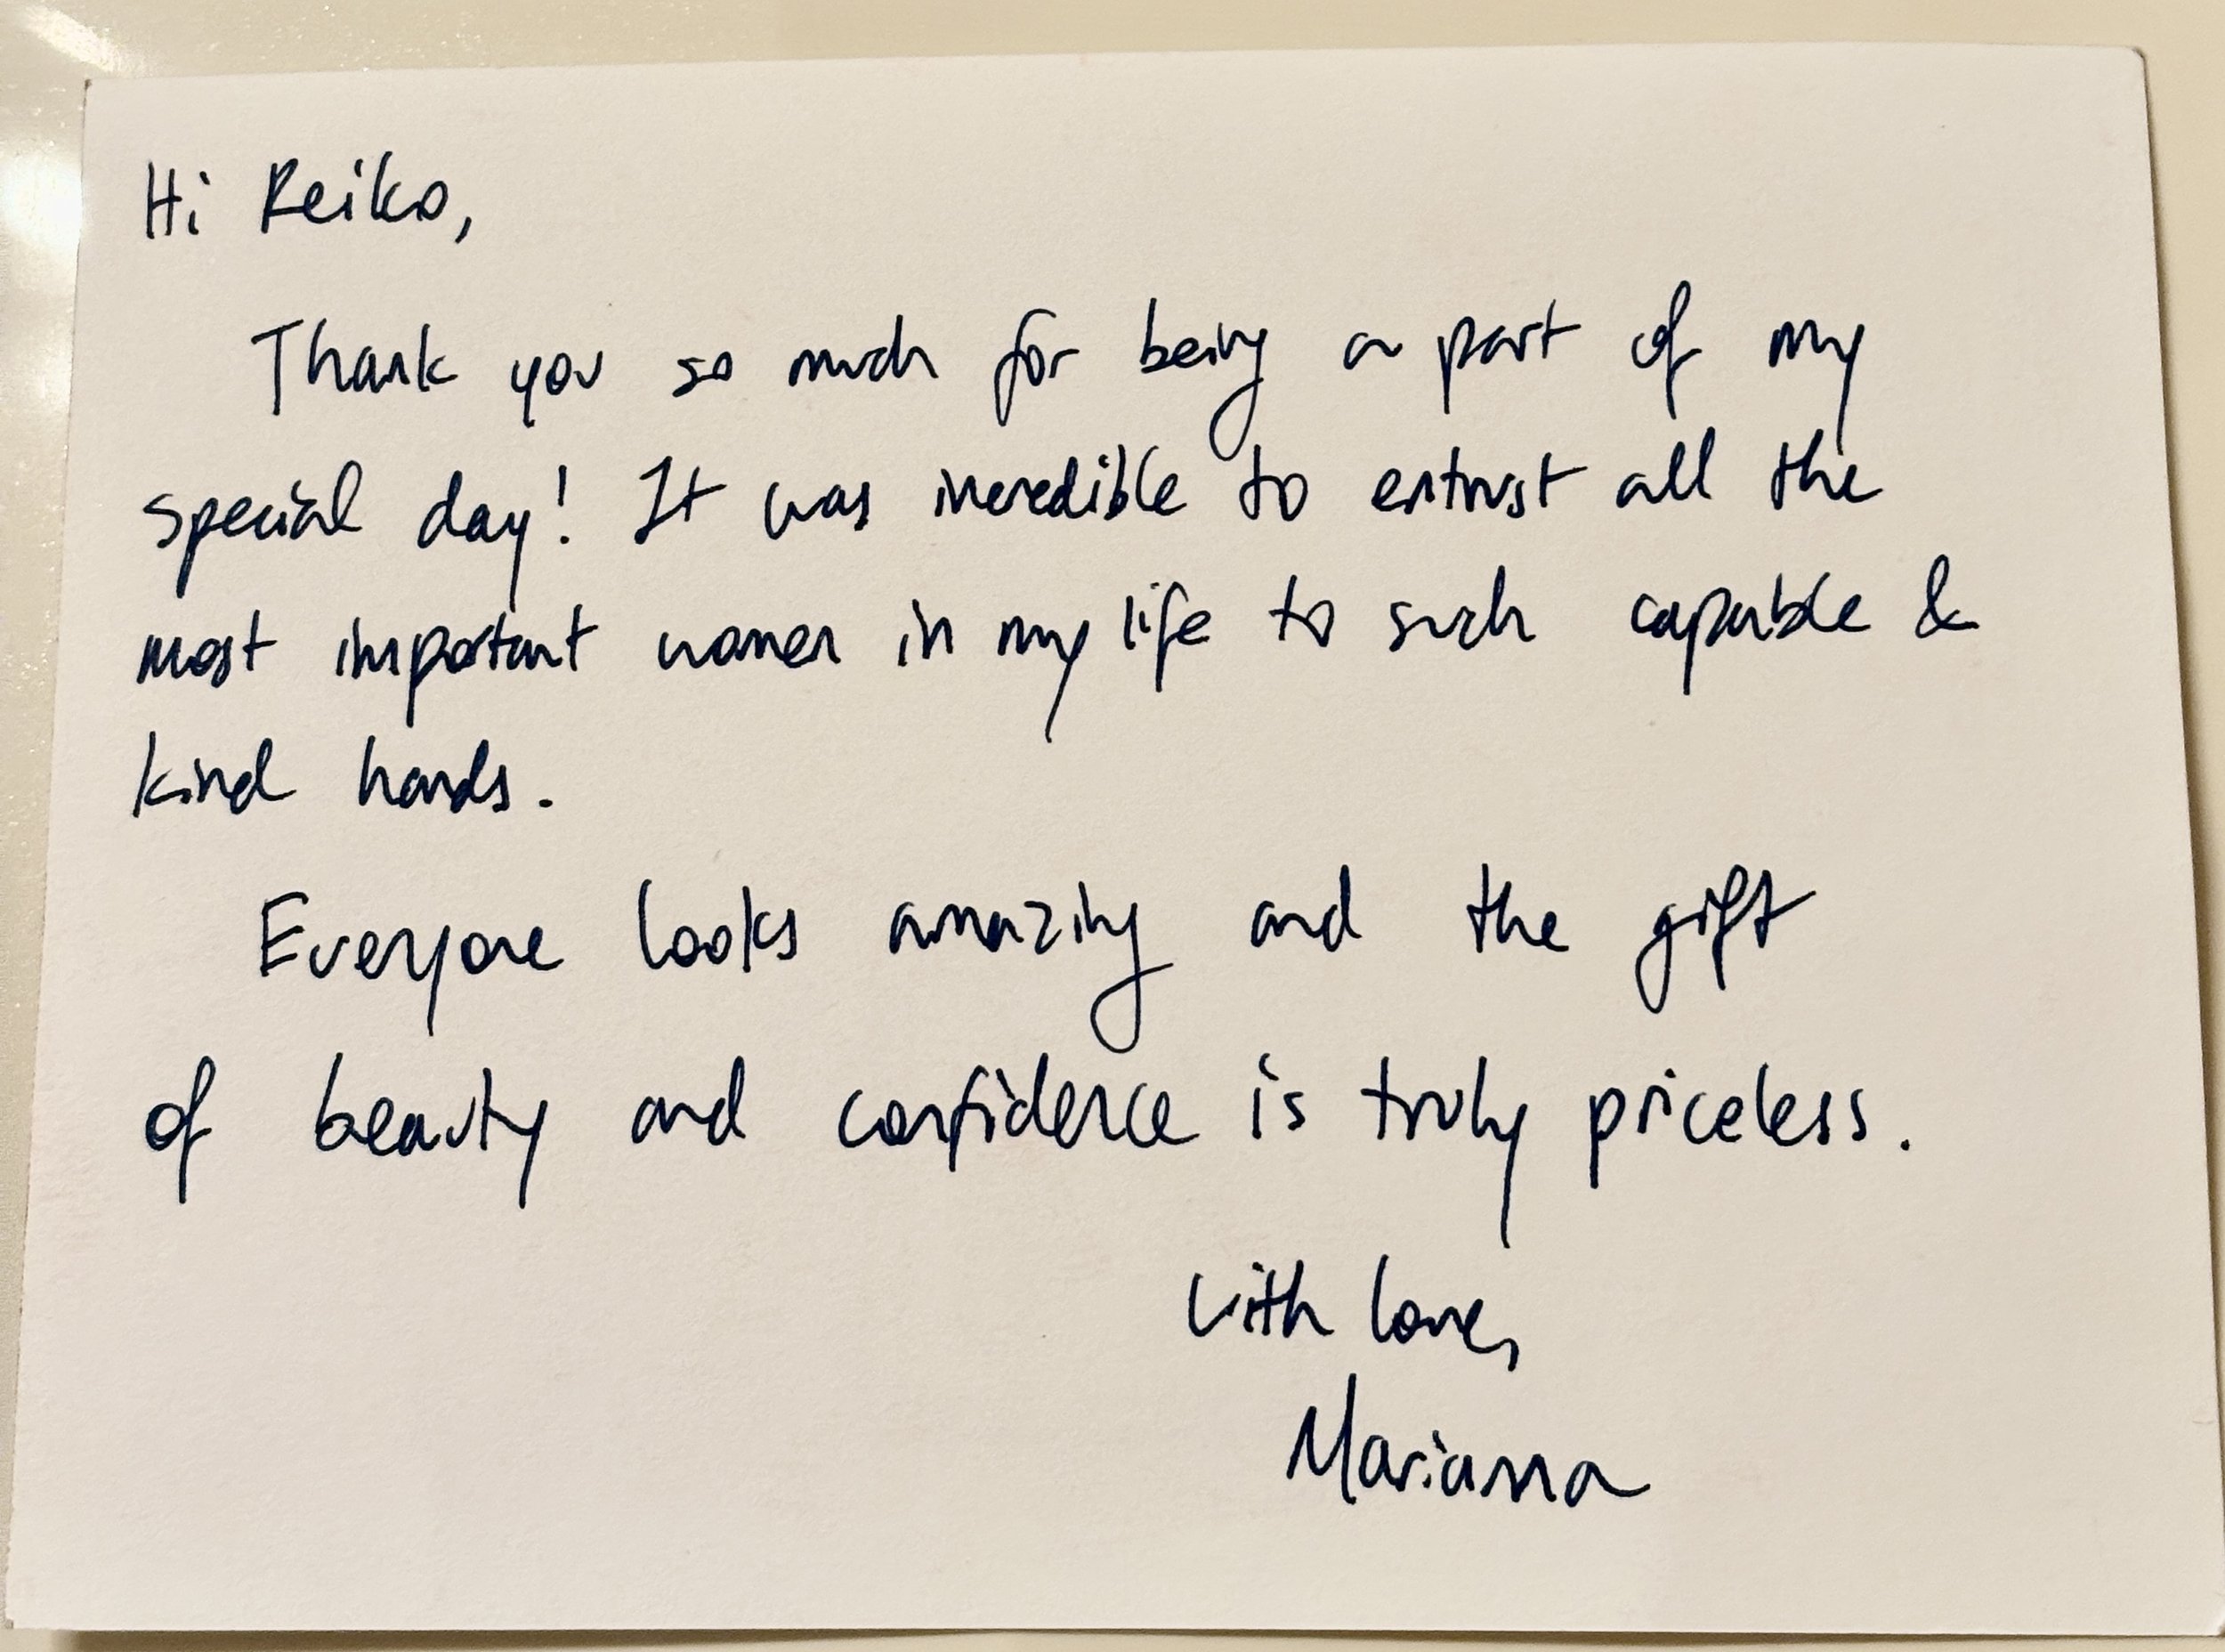 Hi Reiko,
Thank you so much for being a part of my
special day! It was incredible to entrust all the
most important women in my life to such capable &
kind hands.
Everyone looks amazing and the gift
of beauty and confidence is truly priceless.
With love,
Marianna